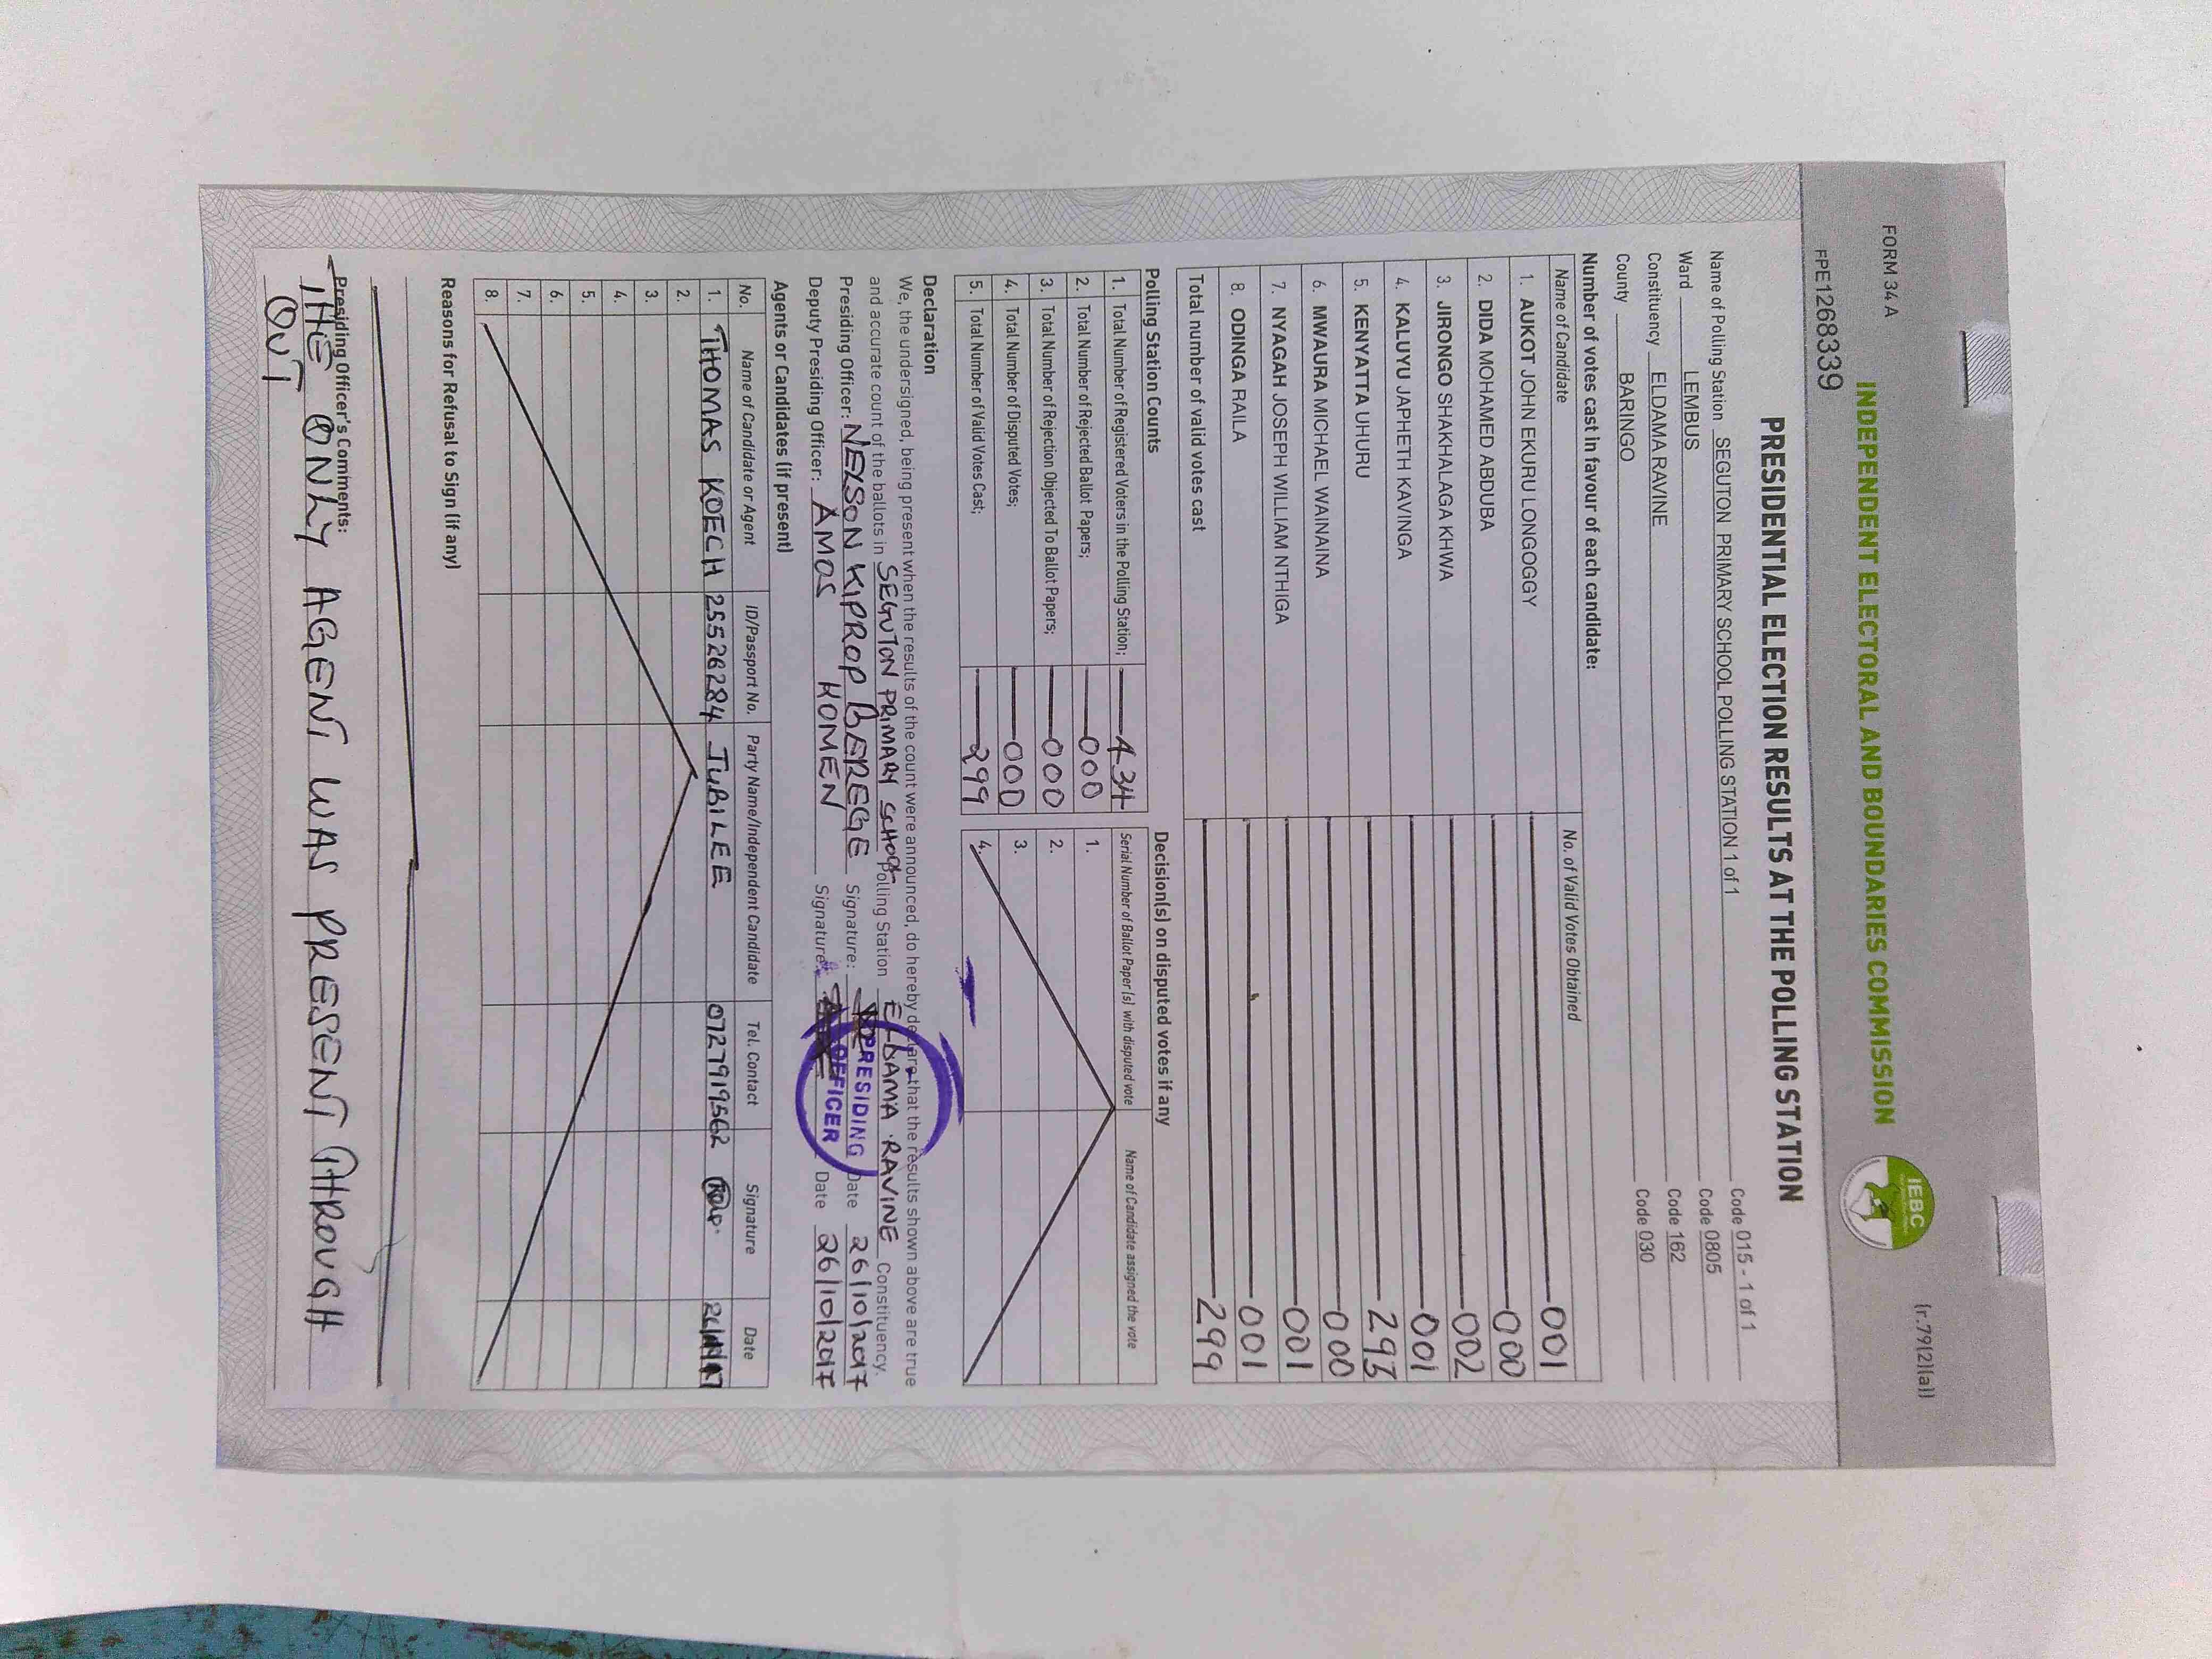 FORM 34 A
(r.79(2)(a))
INDEPENDENT ELECTORAL AND BOUNDARIES COMMISSION
IEBC
FPE1268339
PRESIDENTIAL ELECTION RESULTS AT THE POLLING STATION
Name of Polling Station SEGUTON PRIMARY SCHOOL POLLING STATION 1 of 1 Code 015 - 1 of 1
Ward LEMBUS Code 0805
Constituency ELDAMA RAVINE Code 162
County BARINGO Code 030
Number of votes cast in favour of each candidate:
Name of Candidate No. of Valid Votes Obtained
1. AUKOT JOHN EKURU LONGOGGY 001
2. DIDA MOHAMED ABDUBA 000
3. JIRONGO SHAKHALAGA KHWA 002
4. KALUYU JAPHETH KAVINGA 001
5. KENYATTA UHURU 293
6. MWAURA MICHAEL WAINAINA 000
7. NYAGAH JOSEPH WILLIAM NTHIGA 001
8. ODINGA RAILA 001
Total number of valid votes cast 299
Polling Station Counts
1. Total Number of Registered Voters in the Polling Station; 434
2. Total Number of Rejected Ballot Papers; 000
3. Total Number of Rejection Objected To Ballot Papers; 000
4. Total Number of Disputed Votes; 000
5. Total Number of Valid Votes Cast; 299
Decision(s) on disputed votes if any
Serial Number of Ballot Paper (s) with disputed vote Name of Candidate assigned the vote
1.
2.
3.
4.
Declaration
We, the undersigned, being present when the results of the count were announced, do hereby declare that the results shown above are true
and accurate count of the ballots in SEGUTON PRIMARY SCHOOL Polling Station ELDAMA RAVINE Constituency.
Presiding Officer: NELSON KIPROP BEREGE Signature: Date 26/10/2017
Deputy Presiding Officer: AMOS KOMEN Signature: Date 26/10/2017
PRESIDING
OFFICER
Agents or Candidates (if present)
No. Name of Candidate or Agent ID/Passport No. Party Name/Independent Candidate Tel. Contact Signature Date
1. THOMAS KOECH 25526284 JUBILEE 0727919562
2.
3.
4.
5.
6.
7.
8.
Reasons for Refusal to Sign (if any)
Presiding Officer's Comments:
THE ONLY AGENT WAS PRESENT THROUGH
OUT